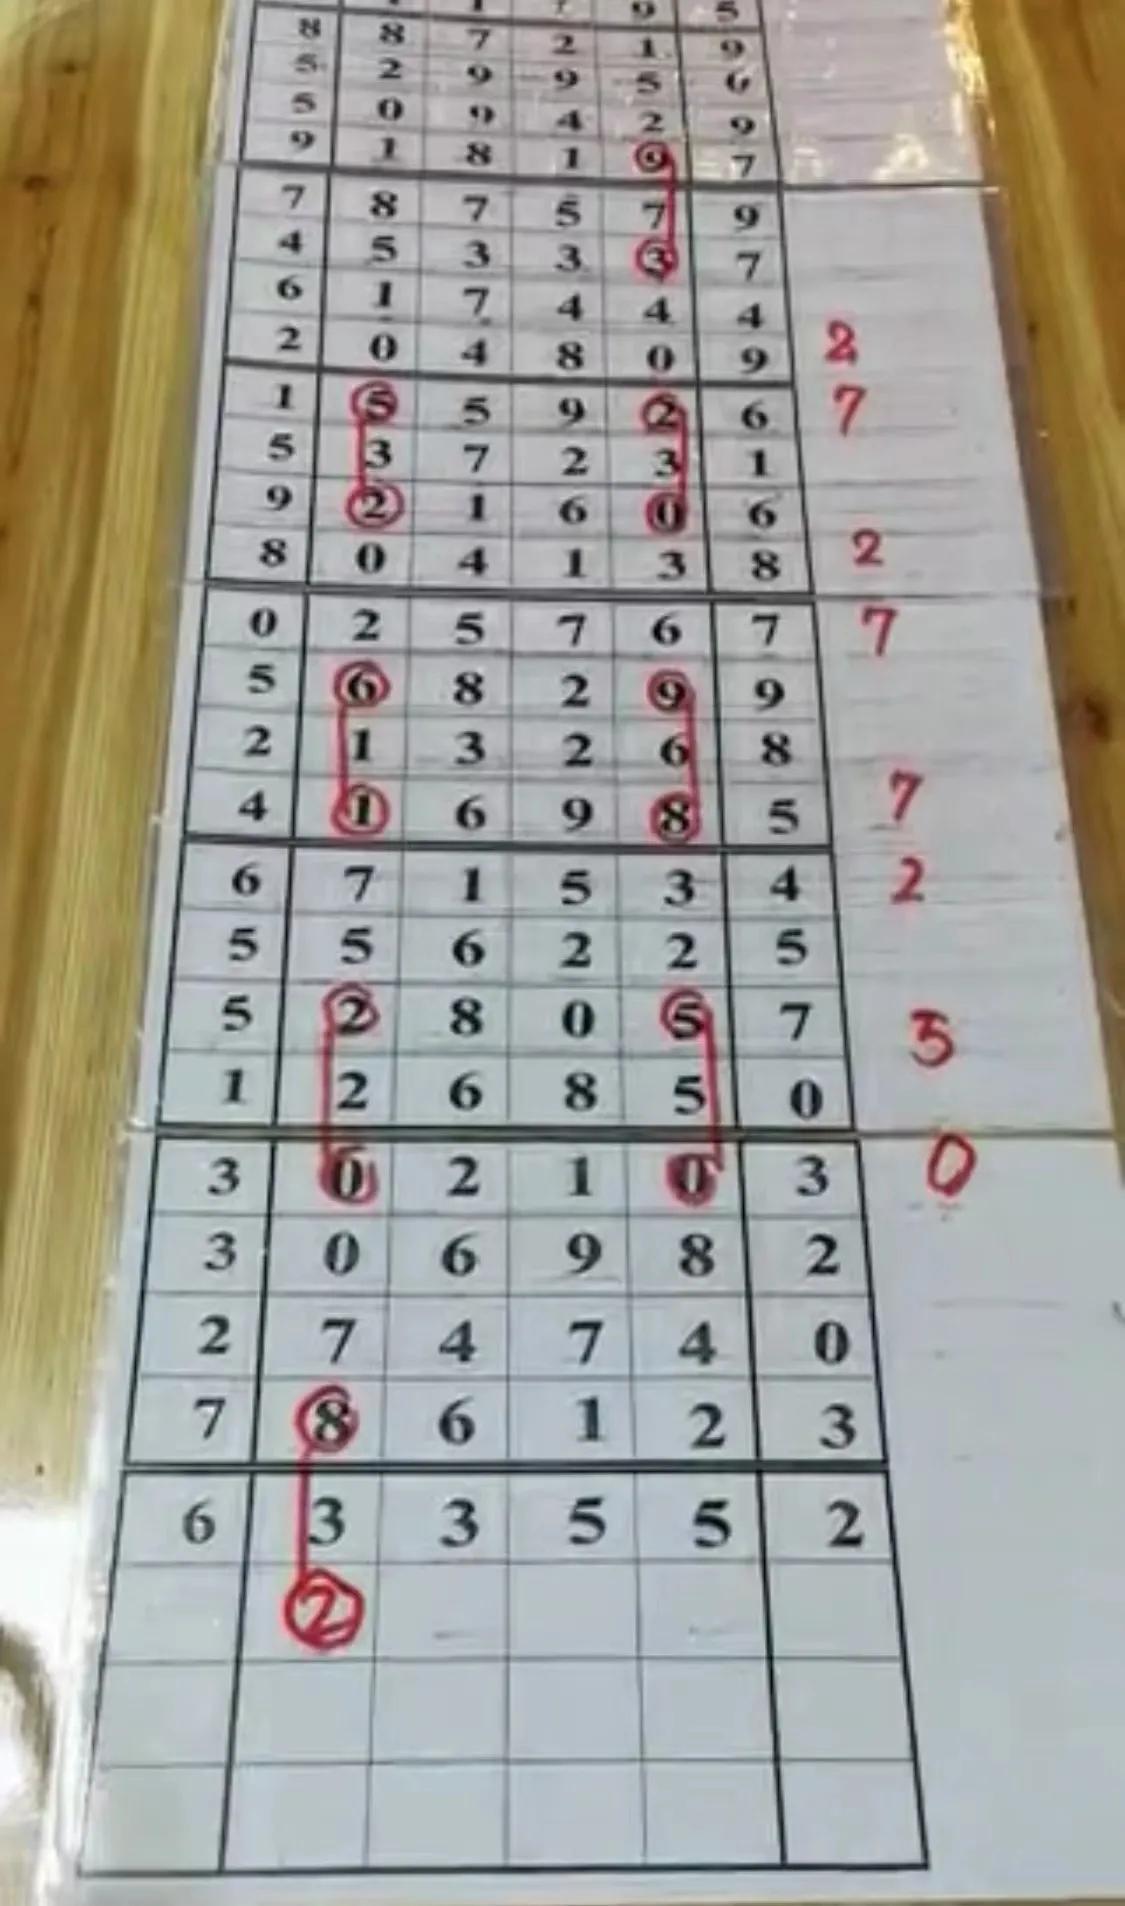 1 9 5
8 8 7 2 1 9
5 2 9 9 5 6
5 0 9 4 2 9
9 1 8 1 9 7
7 8 7 5 7 9
4 5 3 3 3 7
6 1 7 4 4 4
2 0 4 8 0 9 2
1 5 5 9 2 6 7
5 3 7 2 3 1
9 2 1 6 0 6
8 0 4 1 3 8 2
0 2 5 7 6 7 7
5 6 8 2 9 9
2 1 3 2 6 8
4 1 6 9 8 5 7
6 7 1 5 3 4 2
5 5 6 2 2 5
5 2 8 0 5 7 5
1 2 6 8 5 0
3 0 2 1 0 3 0
3 0 6 9 8 2
2 7 4 7 4 0
7 8 6 1 2 3
6 3 3 5 5 2
2